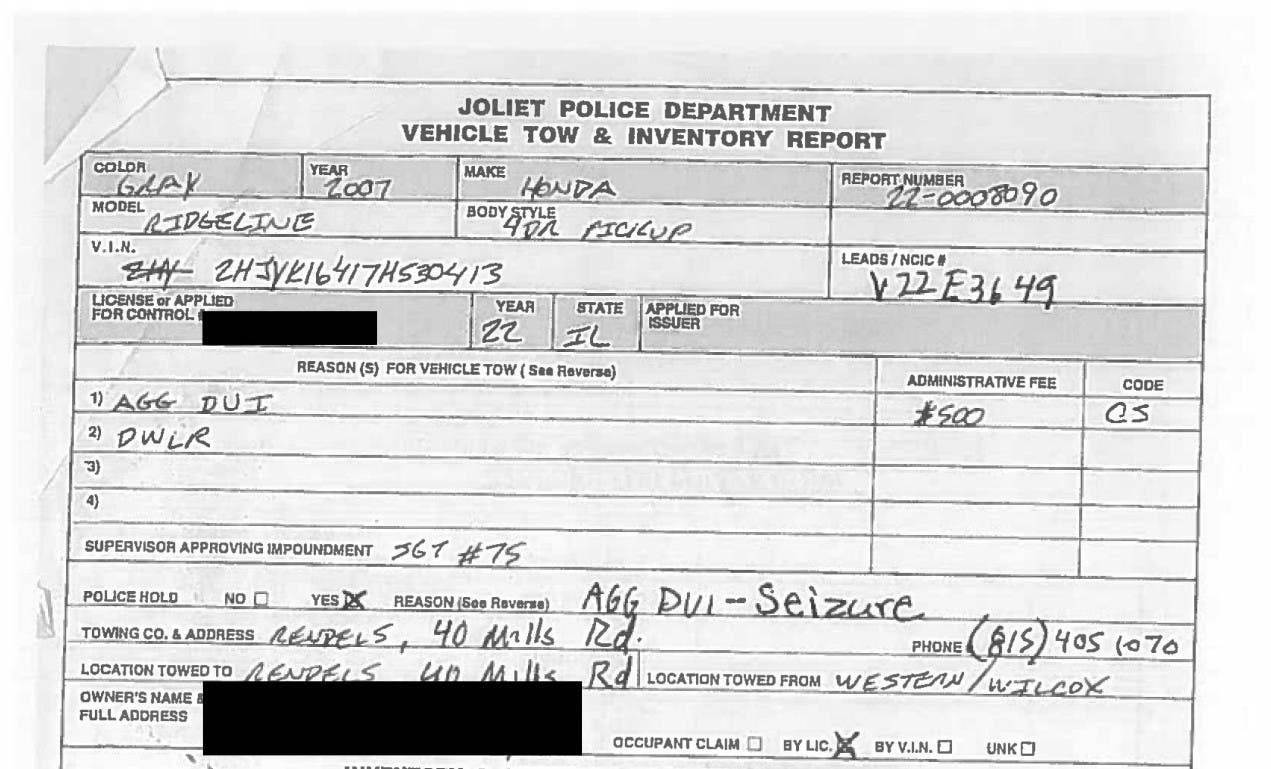 JOLIET POLICE DEPARTMENT
VEHICLE TOW & INVENTORY REPORT
COLOR GRAY YEAR 2007 MAKE HONDA REPORT NUMBER 22-0008090
MODEL RIDGELINE BODY STYLE 4DR PICKUP
V.I.N. 2HJYK16417H530413 LEADS / NCIC # V22E3649
LICENSE or APPLIED FOR CONTROL # YEAR 22 STATE IL APPLIED FOR ISSUER
REASON (S) FOR VEHICLE TOW ( See Reverse) ADMINISTRATIVE FEE CODE
1) AGG DUI $500 CS
2) DWLR
3)
4)
SUPERVISOR APPROVING IMPOUNDMENT SGT #75
POLICE HOLD NO ☐ YES ☒ REASON (See Reverse) AGG DUI - Seizure
TOWING CO. & ADDRESS RENDELS, 40 Mills Rd. PHONE (815) 405 1070
LOCATION TOWED TO RENDELS 40 Mills Rd LOCATION TOWED FROM WESTERN/WILCOX
OWNER'S NAME &
FULL ADDRESS
OCCUPANT CLAIM ☐ BY LIC. ☒ BY V.I.N. ☐ UNK ☐